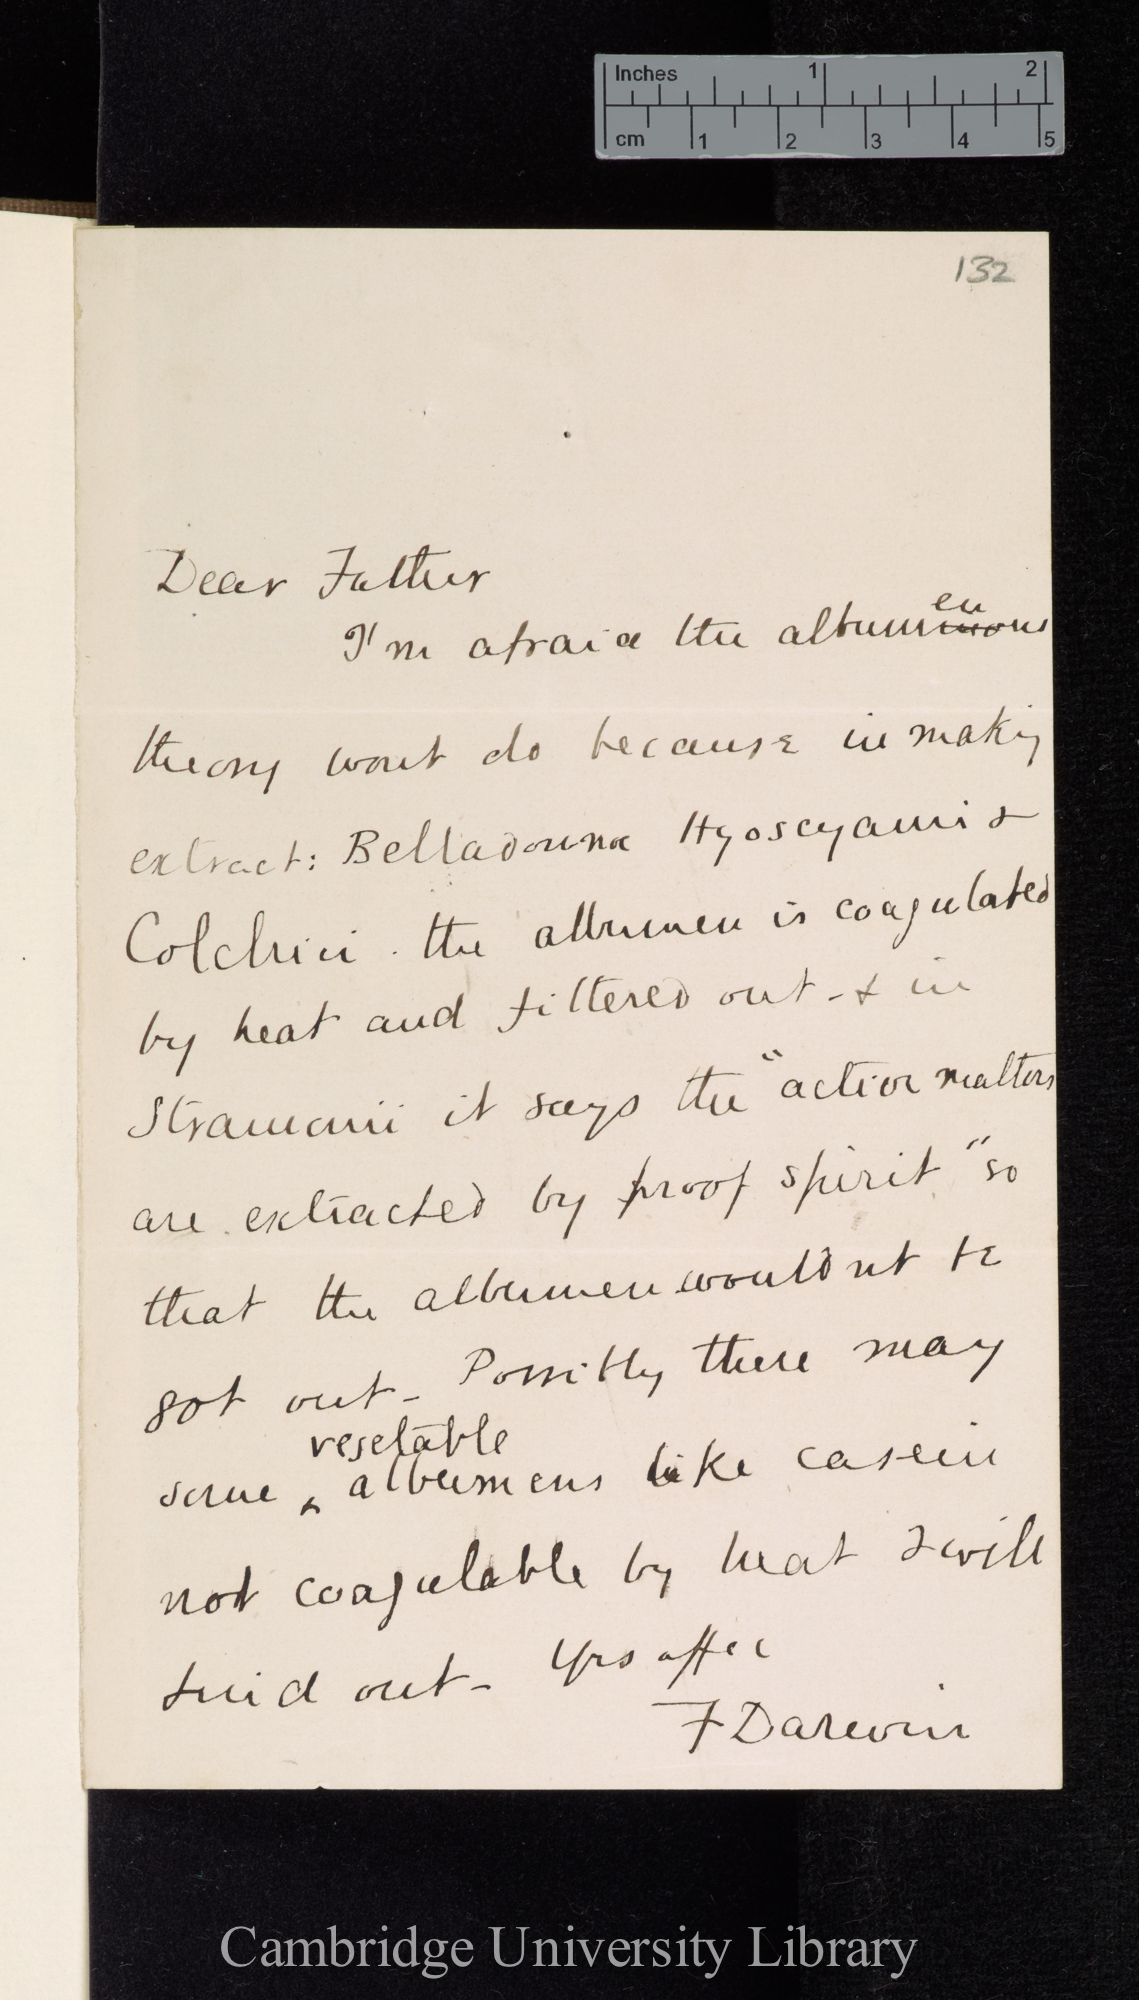 Inches 1 2
cm 1 2 3 4 5
132
Dear Father
en
I'm afraid the albuminous
theory wont do because in making
extract: Belladonna Hyoscyami &
Colchici. the albumen is coagulated
by heat and filtered out - & in
Stramonii it says the "active matters
are extracted by proof spirit" so
that the albumen wouldnt be
got out - Possibly there may
vegetable
some ‸ albumens like casein
not coagulable by heat I will
find out - Yrs affec
F Darwin
Cambridge University Library